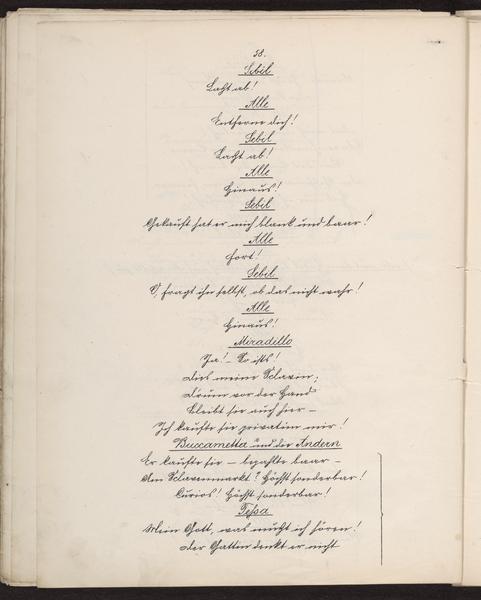 58.
Sebil
Laßt ab!
Alle
Entferne dich!
Sebil
Laßt ab!
Alle
Hinaus!
Sebil
Gekauft hat er mich blank und baar!
Alle
Fort!
Sebil
O, fragt ihn selbst, ob das nicht wahr!
Alle
Hinaus!
Miradillo
Ja! – So ist's!
Dies meine Sclavin;
D'rum vor der Hand
Bleibt sie auch hier –
Ich kaufte sie privatim mir!
Buccametta und die Andern
Er kaufte sie – bezahlte baar –
Am Sclavenmarkt? Höchst sonderbar!
Curios! Höchst sonderbar!
Tessa
Mein Gott, was mußt ich hören!
Der Gattin denkt er nicht